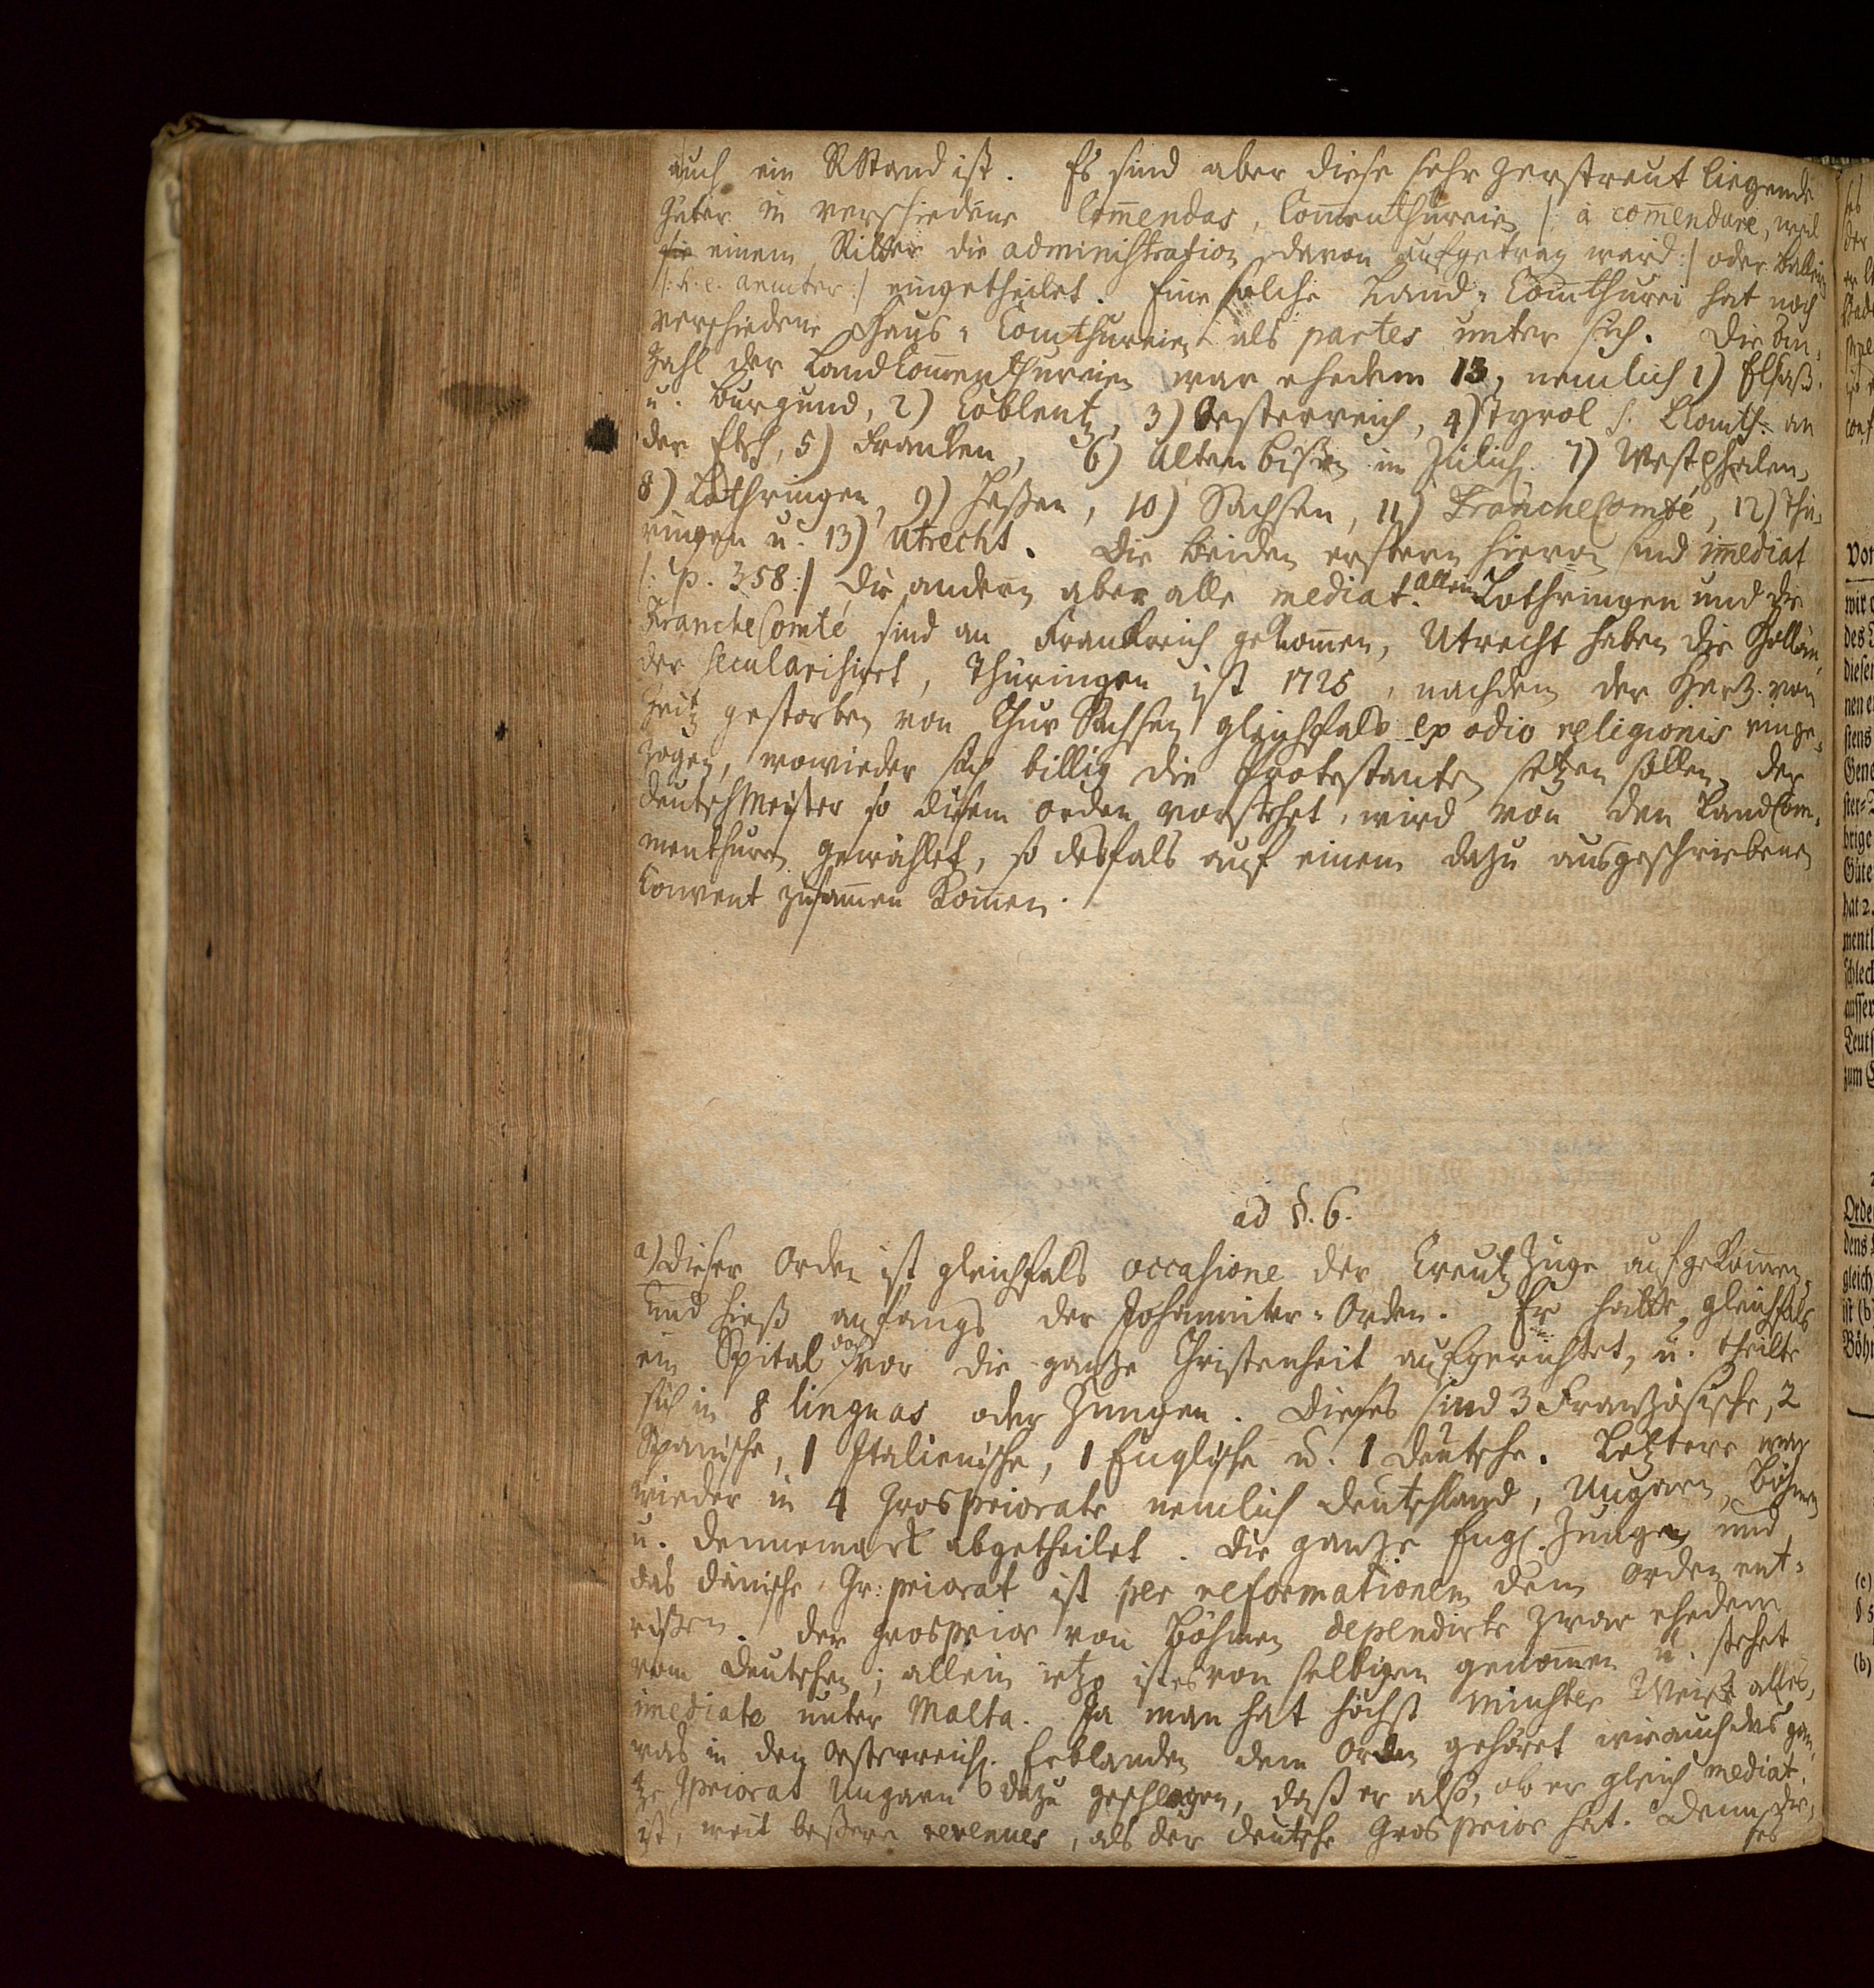 auch ein RStand ist. Es sind aber diese sehr zerstreut liegende
Güter in verschiedene Com̄endas, Com̄enthureien /: à com̄endare, weil
einem Ritter die administration davon aufgetrag. werd :/ oder Balleien
/: h. e. aemter :/ eingetheilet. Eine solche Land-Com̄thurei hat noch
verschiedene Haus-Com̄thureien als partes unter sich. Die An-
zahl der LandCom̄enthureien war ehedem 13, nemlich 1) Elsaß
u. Burgund, 2) Coblentz, 3) Oesterreich, 4) Tyrol s. LComth. an
der Etsch, 5) Francken, 6) Alten bißen in Jülich. 7) Westphalen,
8) Lothringen, 9) Heßen, 10) Sachsen, 11) FrancheComté, 12) Thü-
ringen u. 13) Utrecht. Die beiden erstern hievon sind im̄ediat
/: p. 358 :/ die andern aber alle mediat. Allein Lothringen und die
FrancheComté sind an Franckreich gekom̄en, Utrecht haben die Hollän-
der secularisiret, Thüringen ist 1725, nachdem der Hertz. von
Zeitz gestorben von Chur Sachsen gleichfals ex odio religionis einge-
zogen, wowieder sich billig die Protestanten setzen sollen. Der
DeutschMeister so diesem Orden vorstehet, wird von den LandCom-
menthurn gewählet, so desfals auf einem dazu ausgeschriebenen
Convent zusam̄en kom̄en.
ad §. 6.
a) Dieser Orden ist gleichfals occasione der Creutz Züge aufgekom̄en
und hieß anfangs der Johanniter-Orden. Er hatte gleichfals
ein Spital doch vor die gantze Christenheit aufgerichtet, u. theilte
sich in 8 linguas oder Zungen. Dieses sind 3 Französische, 2
Spanische, 1 Italienische, 1 Englische u. 1 Deutsche. Letztere war
wieder in 4 Grospriorate nemlich Deutschland, Ungarn, Böhmen
u. Dennemark abgetheilet. Die gantze Engl. Zunge und
das dänische Gr: priorat ist per reformationem dem Orden ent-
rißen. Der Grosprior von Böhmen dependirte zwar ehedem
vom Deutschen; allein ietzo ist es von selbigen genom̄en u. stehet
im̄ediate unter Malta. Ja man hat höchst Weise alles,
was in den Oesterreich. Erblanden dem Orden gehöret wie auch das gan-
tze Gpriorat Ungarn dazu geschlagen, daß er also, ob er gleich mediat
ist, weit beßere revenues, als der deutsche Grosprior hat. Denn die-
ses